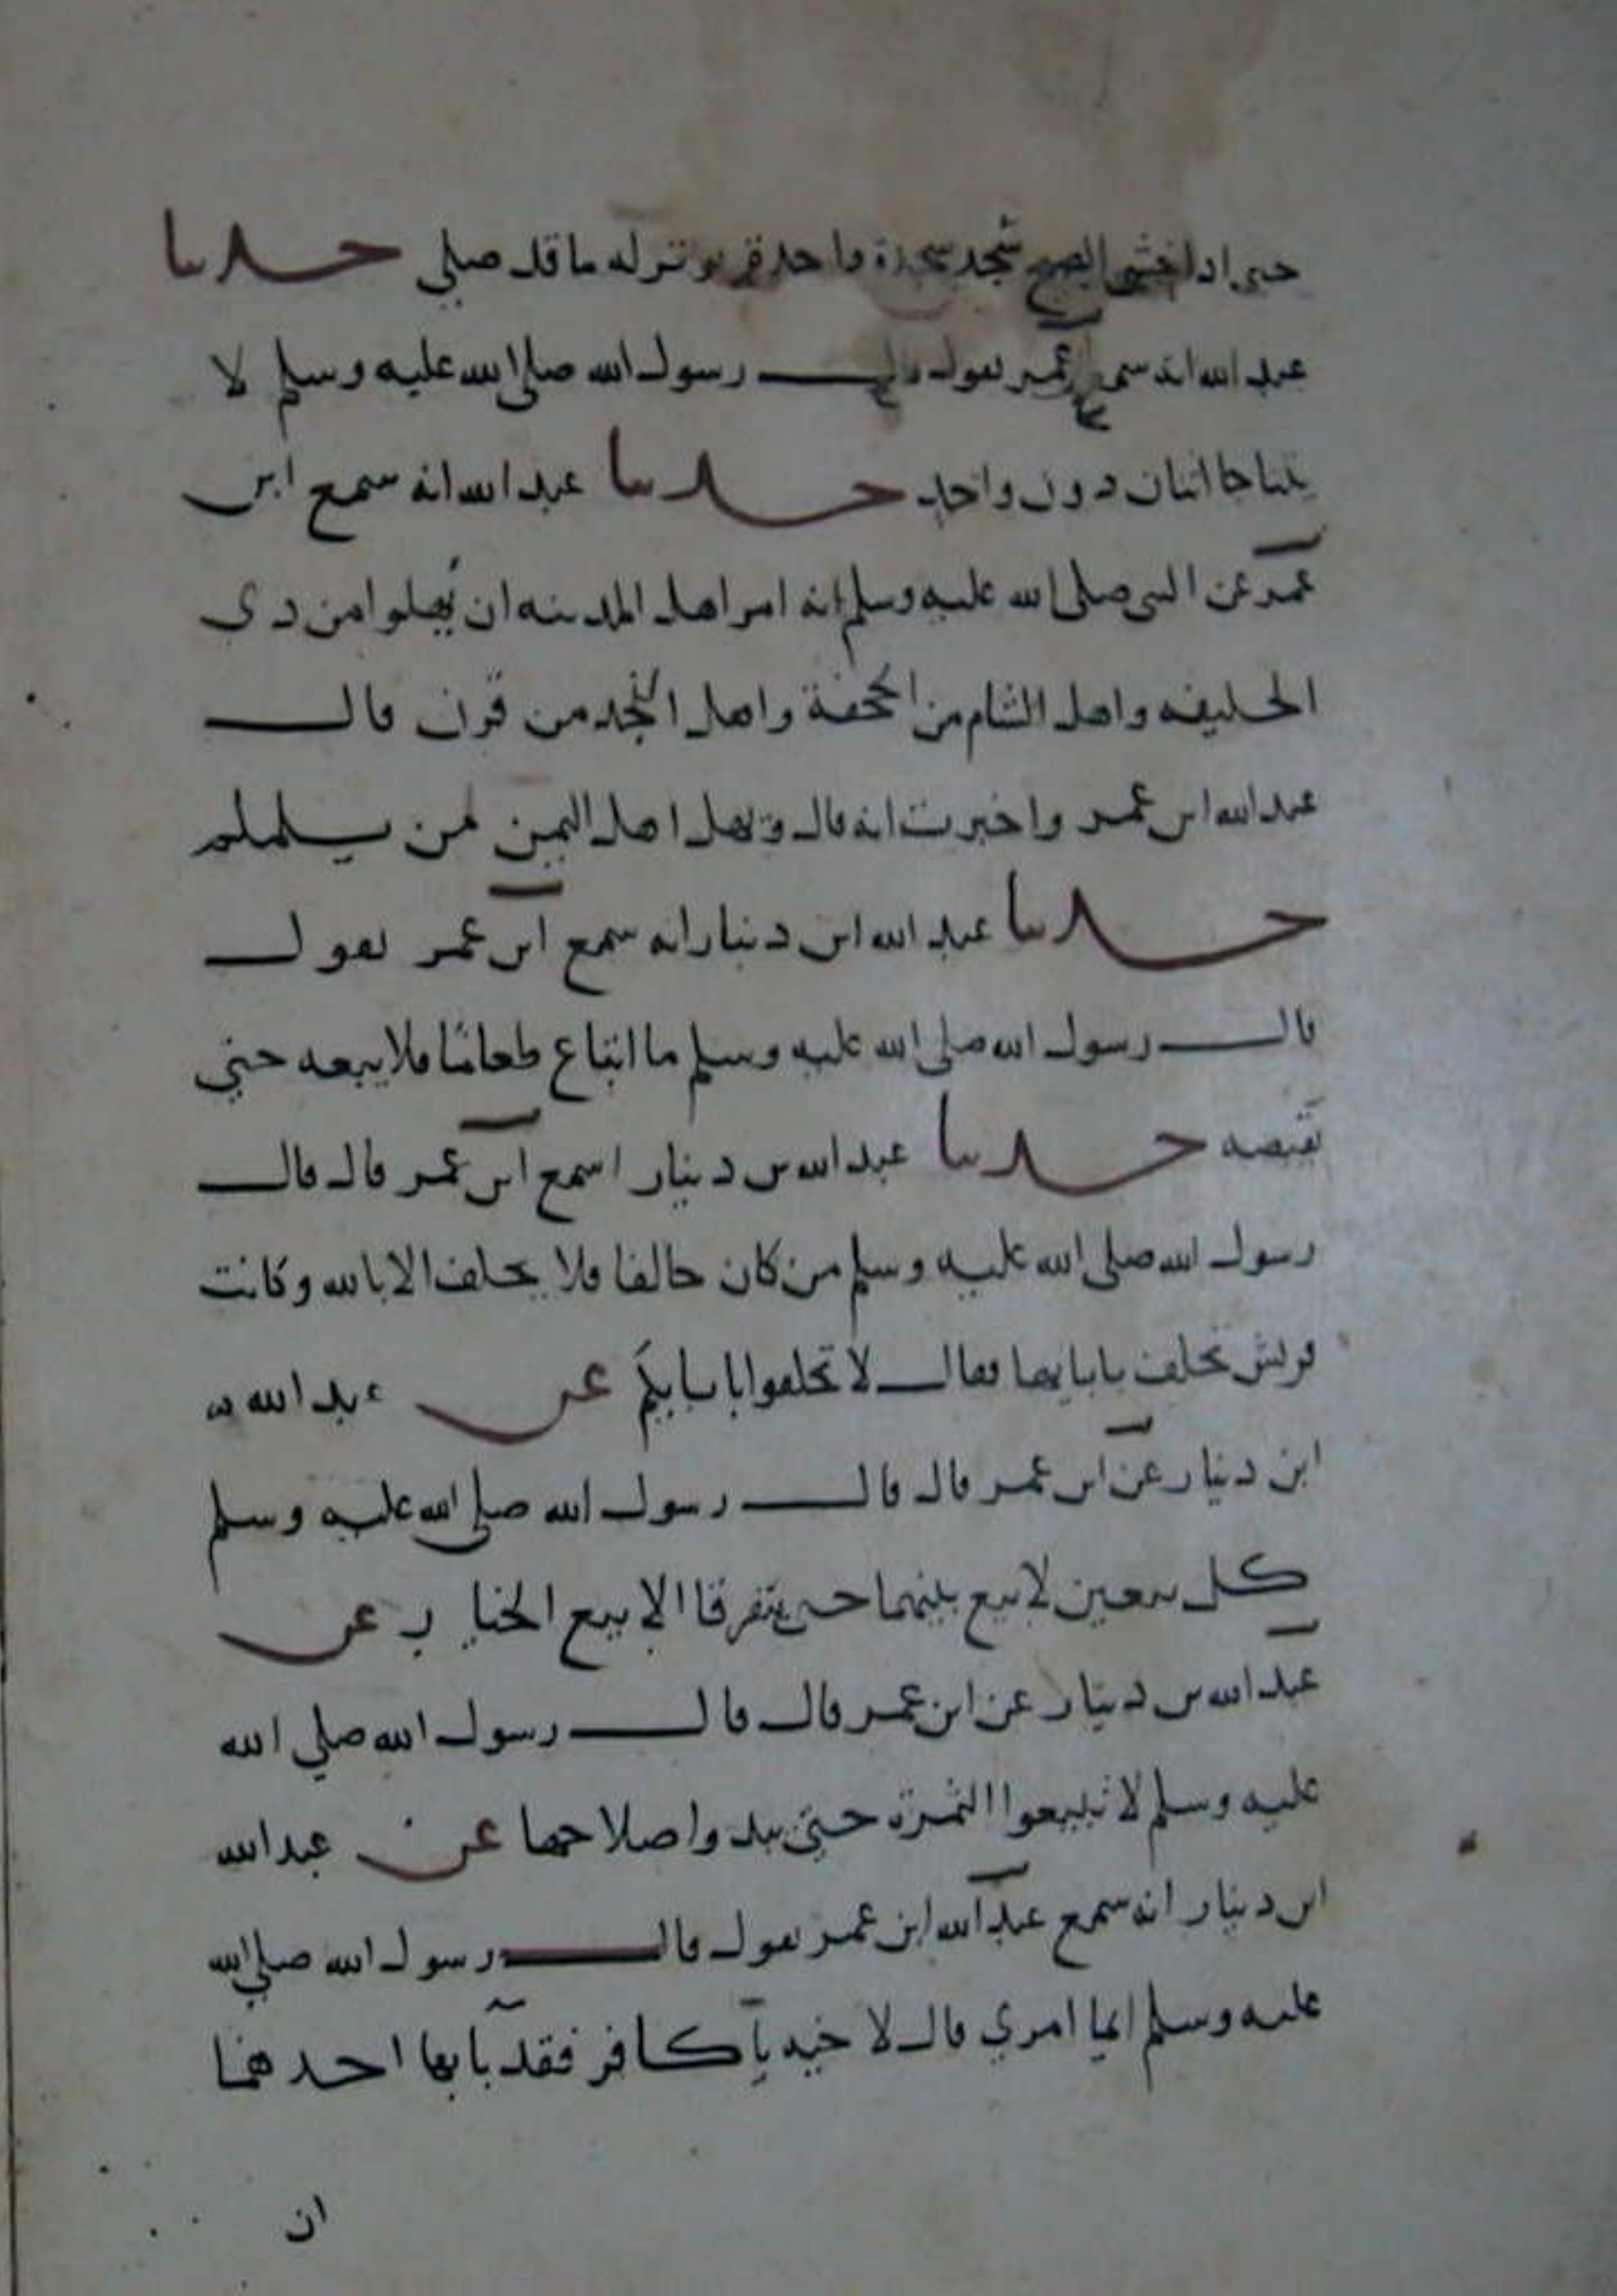 حتى اذا خشي الصبح سجد سجدة واحدة توتر له ما قد صلى حدثنا
عبد الله انه سمع ابن عمر يقول قال رسول الله صلى الله عليه وسلم لا
يتناجا اثنان دون واحد حدثنا عبد الله انه سمع ابن
عمر عن النبي صلى الله عليه وسلم انه امر اهل المدينه ان يهلوا من ذي
الحليفه واهل الشام من الجحفة واهل النجد من قرن قال
عبد الله ابن عمر واخبرت انه قال ويهل اهل اليمن من يلملم
حدثنا عبد الله ابن دينار انه سمع ابن عمر يقول
قال رسول الله صلى الله عليه وسلم ما ابتاع طعاما فلا يبعه حتي
تقبضه حدثنا عبد الله بن دينار اسمع ابن عمر قال قال
رسول الله صلى الله عليه وسلم من كان حالفا فلا يحلف الا بالله وكانت
قريش تحلف بابايها فقال لا تحلفوا بابايكم عن عبد الله
ابن دينار عن ابن عمر قال قال رسول الله صلى الله عليه وسلم
كل بيعين لا بيع بينهما حتى يتفرقا الا بيع الخيار عن
عبد الله بن دينار عن ابن عمر قال قال رسول الله صلي الله
عليه وسلم لا تبيعوا الثمرة حتي يبدوا صلاحها عن عبد الله
ابن دينار انه سمع عبد الله ابن عمر يقول قال رسول الله صلي الله
عليه وسلم ايما امري قال لا خيه يا كافر فقد بآبها احدهما
ان